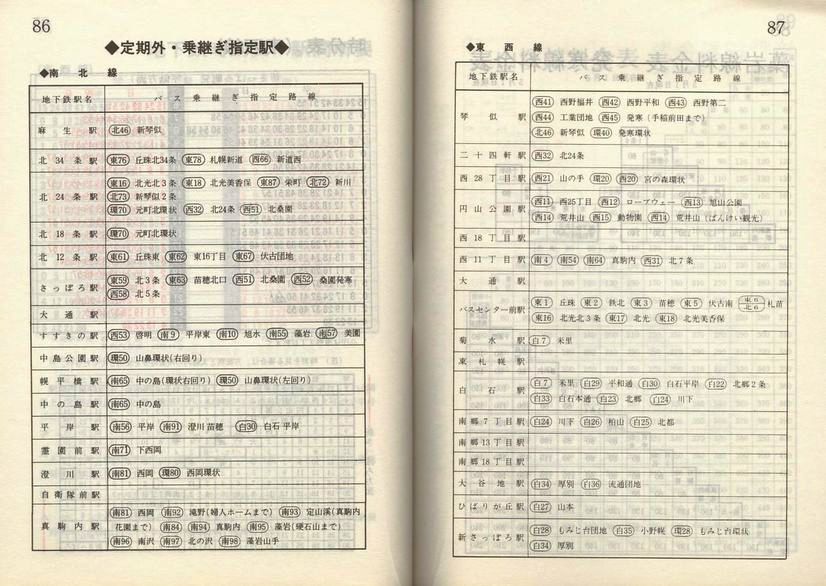 86
◆定期外・乗継ぎ指定駅◆
◆南北線
地下鉄駅名 バス乗継ぎ指定路線
麻生駅 北46 新琴似
北34条駅 東76 丘珠北34条 東78 札幌新道 西66 新道西
北24条駅 東16 北光北3条 東18 北光美香保 東87 栄町 北72 新川
北73 新琴似2条
環70 元町北環状 西32 北24条 西51 北桑園
北18条駅 環70 元町北環状
北12条駅 東61 丘珠東 東62 東16丁目 東67 伏古団地
さっぽろ駅 東59 北3条 東63 苗穂北口 西51 北桑園 西52 桑園発寒
西58 北5条
大通駅
すすきの駅 西53 啓明 南9 平岸東 南10 旭水 南55 藻岩 南57 美園
中島公園駅 環50 山鼻環状(右回り)
幌平橋駅 南65 中の島(環状右回り) 環50 山鼻環状(左回り)
中の島駅 南65 中の島
平岸駅 南56 平岸 南91 澄川苗穂 白30 白石平岸
霊園前駅 南71 下西岡
澄川駅 南81 西岡 環80 西岡環状
自衛隊前駅
真駒内駅 南81 西岡 南92 滝野(婦人ホームまで) 南93 定山渓(真駒内
花園まで) 南84 南94 真駒内 南95 藻岩(硬石山まで)
南96 南沢 南97 北の沢 南98 藻岩山手
87
◆東西線
地下鉄駅名 バス乗継ぎ指定路線
琴似駅 西41 西野福井 西42 西野平和 西43 西野第二
西44 工業団地 西45 発寒(手稲前田まで)
北46 新琴似 環40 発寒環状
二十四軒駅 西32 北24条
西28丁目駅 西21 山の手 環20 西20 宮の森環状
円山公園駅 西11 西25丁目 西12 ロープウェー 西13 旭山公園
西14 荒井山 西15 動物園 西14 荒井山(ばんけい観光)
西18丁目駅
西11丁目駅 南4 南54 南64 真駒内 西31 北7条
大通駅
バスセンター前駅 東1 丘珠 東2 鉄北 東3 苗穂 東5 伏古南 東6 北6 札苗
東16 北光北3条 東17 北光 東18 北光美香保
菊水駅 白7 米里
東札幌駅
白石駅 白7 米里 白29 平和通 白30 白石平岸 白22 北郷2条
白33 白石本通 白23 北郷 白24 川下
南郷7丁目駅 白24 川下 白26 柏山 白25 北都
南郷13丁目駅
南郷18丁目駅
大谷地駅 白34 厚別 白36 流通団地
ひばりが丘駅 白27 山本
新さっぽろ駅 白28 もみじ台団地 白35 小野幌 環28 もみじ台環状
白34 厚別